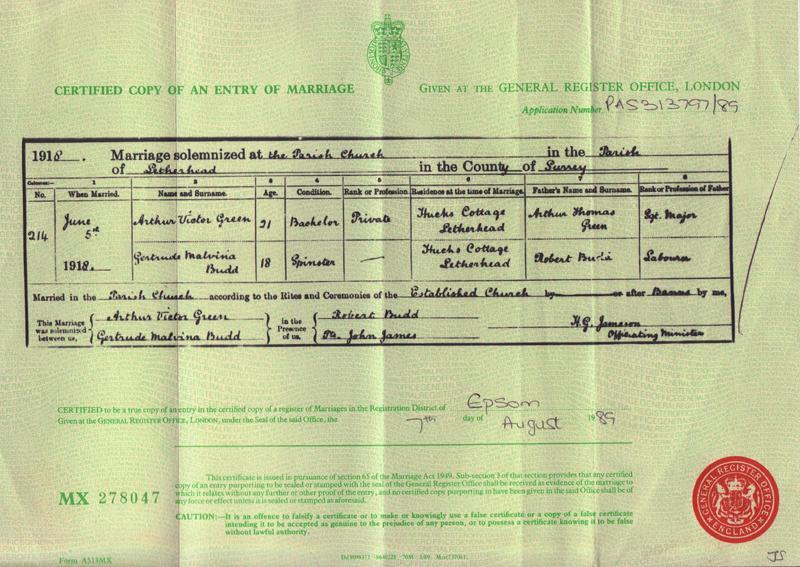 CERTIFIED COPY OF AN ENTRY OF MARRIAGE
GIVEN AT THE GENERAL REGISTER OFFICE, LONDON
Application Number PAS313797/89
1918. Marriage solemnized at the Parish Church in the Parish
of Letherhead in the County of Surrey
Columns:— 1 2 3 4 5 6 7 8
No. When Married. Name and Surname. Age. Condition. Rank or Profession. Residence at the time of Marriage. Father's Name and Surname. Rank or Profession of Father
214 June 5th 1918. Arthur Victor Green 21 Bachelor Private Hucks Cottage Letherhead Arthur Thomas Green Sgt. Major
Gertrude Malvina Budd 18 Spinster — Hucks Cottage Letherhead Robert Budd Labourer
Married in the Parish Church according to the Rites and Ceremonies of the Established Church by or after Banns by me,
This Marriage was solemnized between us, Arthur Victor Green Gertrude Malvina Budd in the Presence of us, Robert Budd John James H.G. Jameson Officiating Minister
CERTIFIED to be a true copy of an entry in the certified copy of a register of Marriages in the Registration District of Epsom
Given at the GENERAL REGISTER OFFICE, LONDON, under the Seal of the said Office, the 7th day of August 1989
MX 278047
This certificate is issued in pursuance of section 65 of the Marriage Act 1949. Sub-section 3 of that section provides that any certified
copy of an entry purporting to be sealed or stamped with the seal of the General Register Office shall be received as evidence of the marriage to
which it relates without any further or other proof of the entry, and no certified copy purporting to have been given in the said Office shall be of
any force or effect unless it is sealed or stamped as aforesaid.
CAUTION:—It is an offence to falsify a certificate or to make or knowingly use a false certificate or a copy of a false certificate
intending it to be accepted as genuine to the prejudice of any person, or to possess a certificate knowing it to be false
without lawful authority.
GENERAL REGISTER OFFICE
ENGLAND
Form A513MX
JS